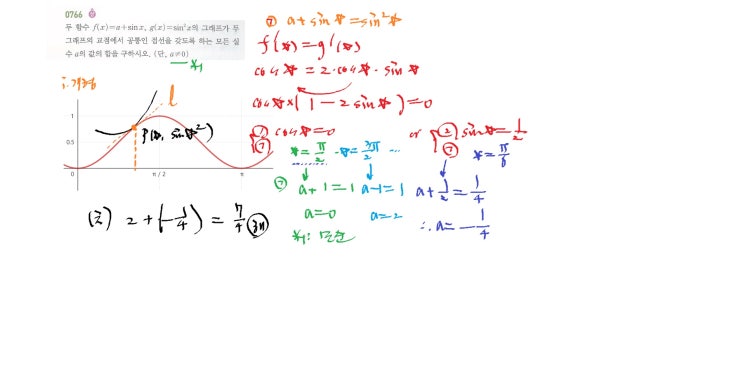 0766
두 함수 f(x)=a+sin x, g(x)=sin²x의 그래프가 두
그래프의 교점에서 공통인 접선을 갖도록 하는 모든 실
수 a의 값의 합을 구하시오. (단, a≠0)
*1
i. 개형
l
P(☆, sin☆²)
1
0.5
0
π / 2
π
㉠ a+sin☆=sin²☆
f'(☆)=g'(☆)
cos☆=2·cos☆·sin☆
cos☆×(1-2sin☆)=0
① cos☆=0 or ② sin☆=1/2
㉠ ☆=π/2 ☆=3π/2 … ㉠ ☆=π/6
㉠ a+1=1 a-1=1 a+1/2=1/4
a=0 a=2 ∴ a=-1/4
*1: 모순
(답) 2+(-1/4)=7/4